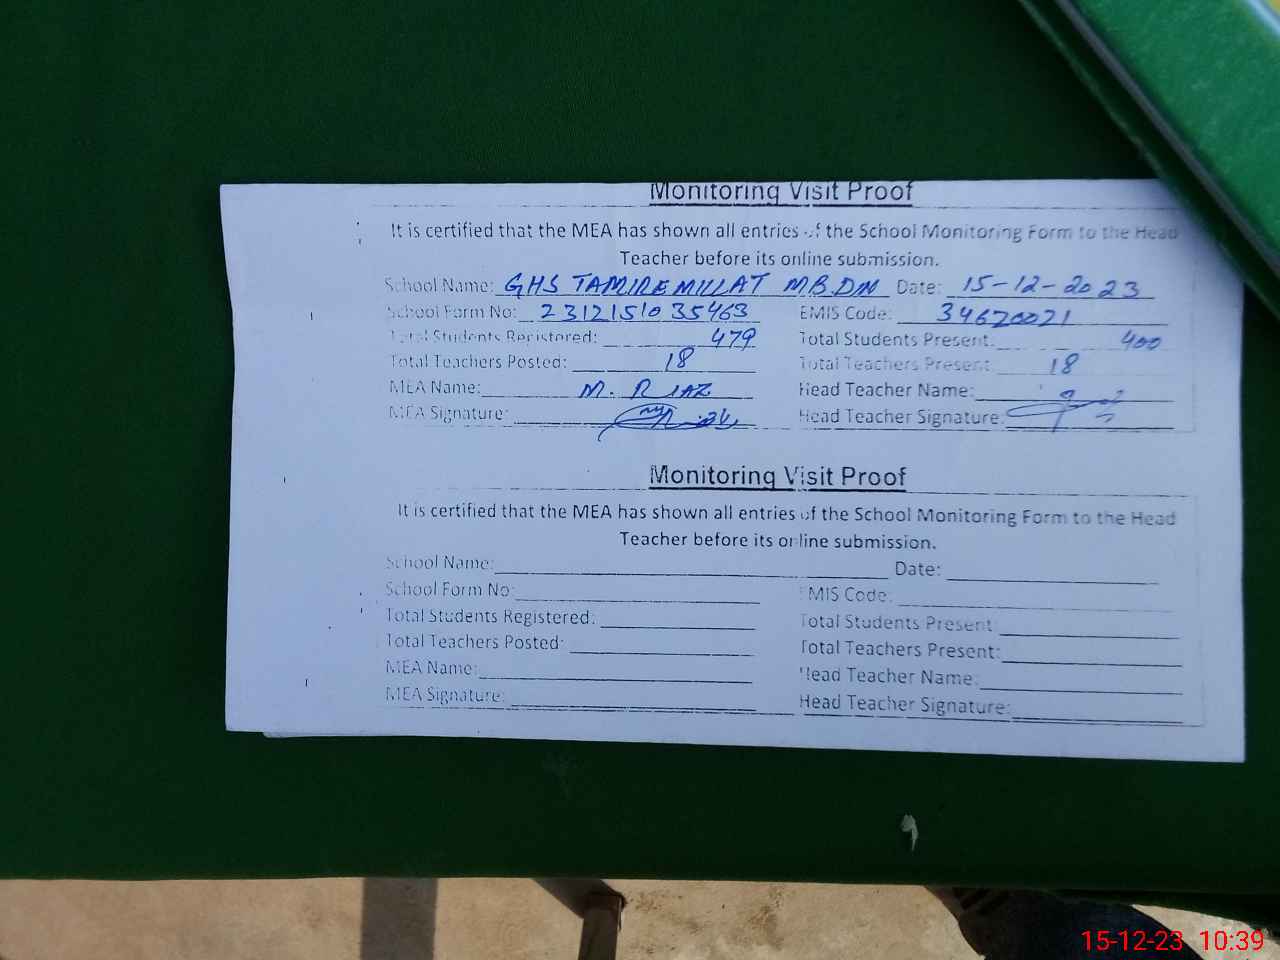 Monitoring Visit Proof
It is certified that the MEA has shown all entries of the School Monitoring Form to the Head
Teacher before its online submission.
School Name: GHS TAMIREMILLAT MBDN Date: 15-12-2023
School Form No: 2312151035463 EMIS Code: 34620021
Total Students Registered: 479 Total Students Present: 400
Total Teachers Posted: 18 Total Teachers Present: 18
MEA Name: M. RIAZ Head Teacher Name:
MEA Signature: Head Teacher Signature:
Monitoring Visit Proof
It is certified that the MEA has shown all entries of the School Monitoring Form to the Head
Teacher before its online submission.
School Name: Date:
School Form No: EMIS Code:
Total Students Registered: Total Students Present:
Total Teachers Posted: Total Teachers Present:
MEA Name: Head Teacher Name:
MEA Signature: Head Teacher Signature:
15-12-23 10:39